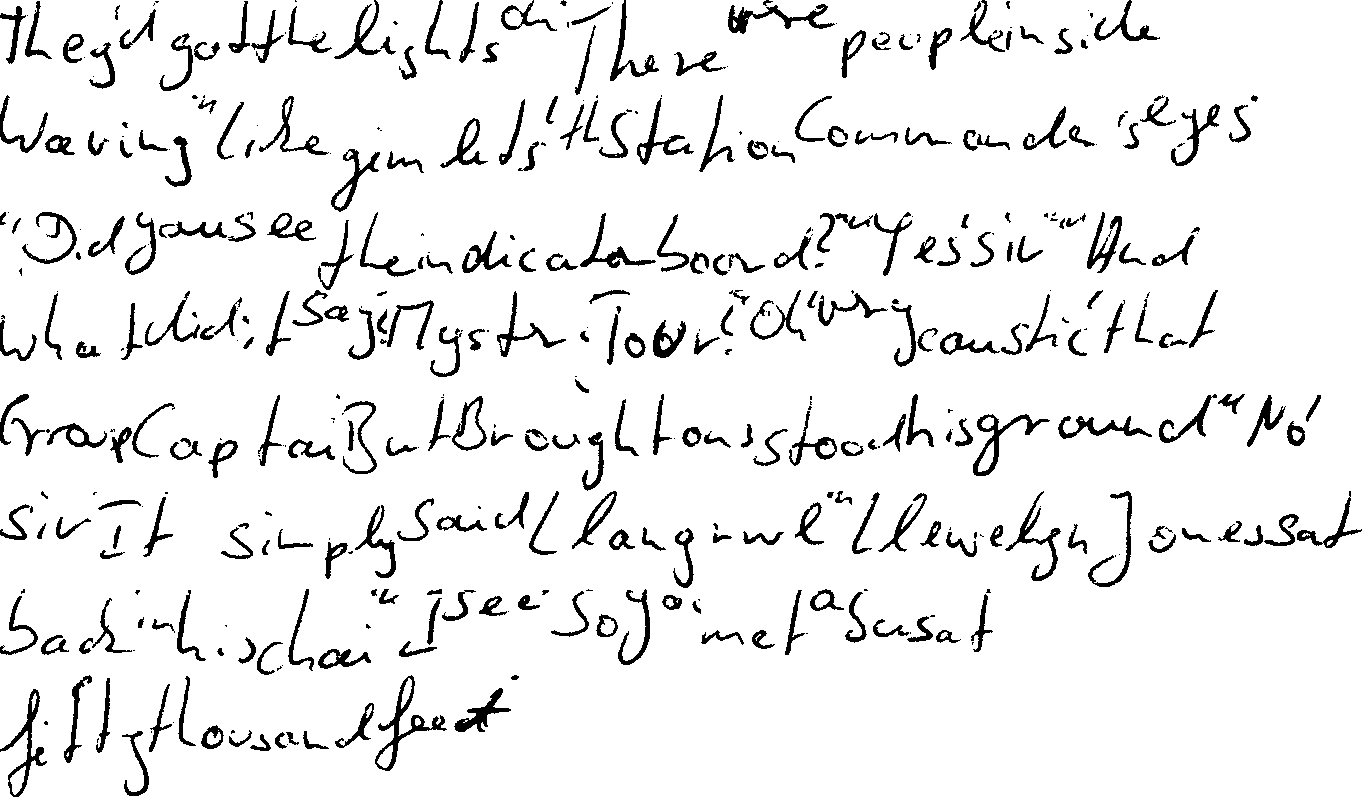 They'd got the lights on. There were people inside
waving." Like gimlets, the Station Commander's eyes.
"Did you see the indicator board?" "Yes, sir." "And
what did it say? Mystery Tour?" Oh, very caustic, that
Group Captain. But Broughton stood his ground. "No,
sir. It simply said [ "Llewelyn ] Jones sat
back in his chair. "I see. So you met a bus at
fifty thousand feet